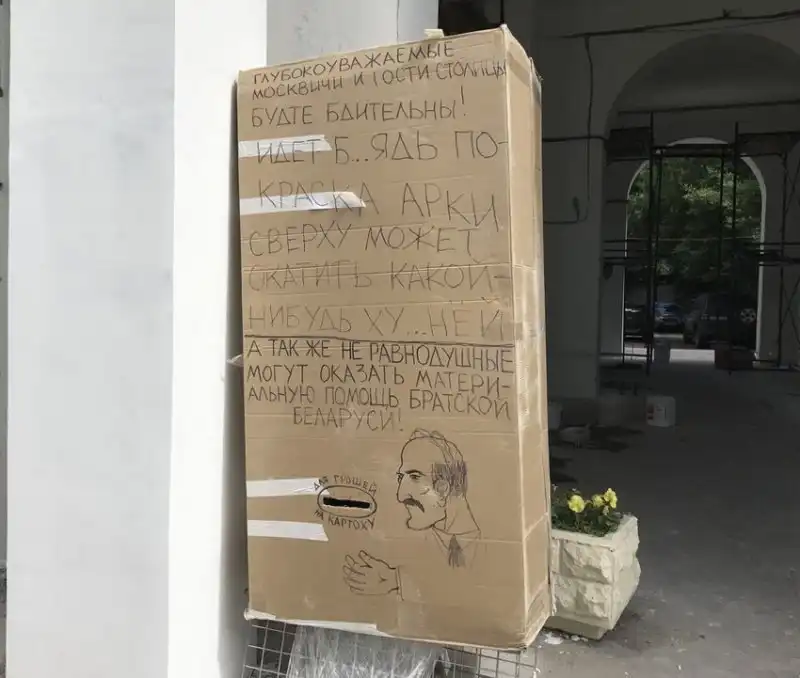 ГЛУБОКОУВАЖАЕМЫЕ
МОСКВИЧИ И ГОСТИ СТОЛИЦЫ
БУДТЕ БДИТЕЛЬНЫ!
ИДЕТ Б...ЯДЬ ПО-
КРАСКА АРКИ
СВЕРХУ МОЖЕТ
ОКАТИТЬ КАКОЙ-
НИБУДЬ ХУ...НЁЙ
А ТАК ЖЕ НЕ РАВНОДУШНЫЕ
МОГУТ ОКАЗАТЬ МАТЕРИ-
АЛЬНУЮ ПОМОЩЬ БРАТСКОЙ
БЕЛАРУСИ!
ДЛЯ ГРОШЕЙ
НА КАРТОХУ